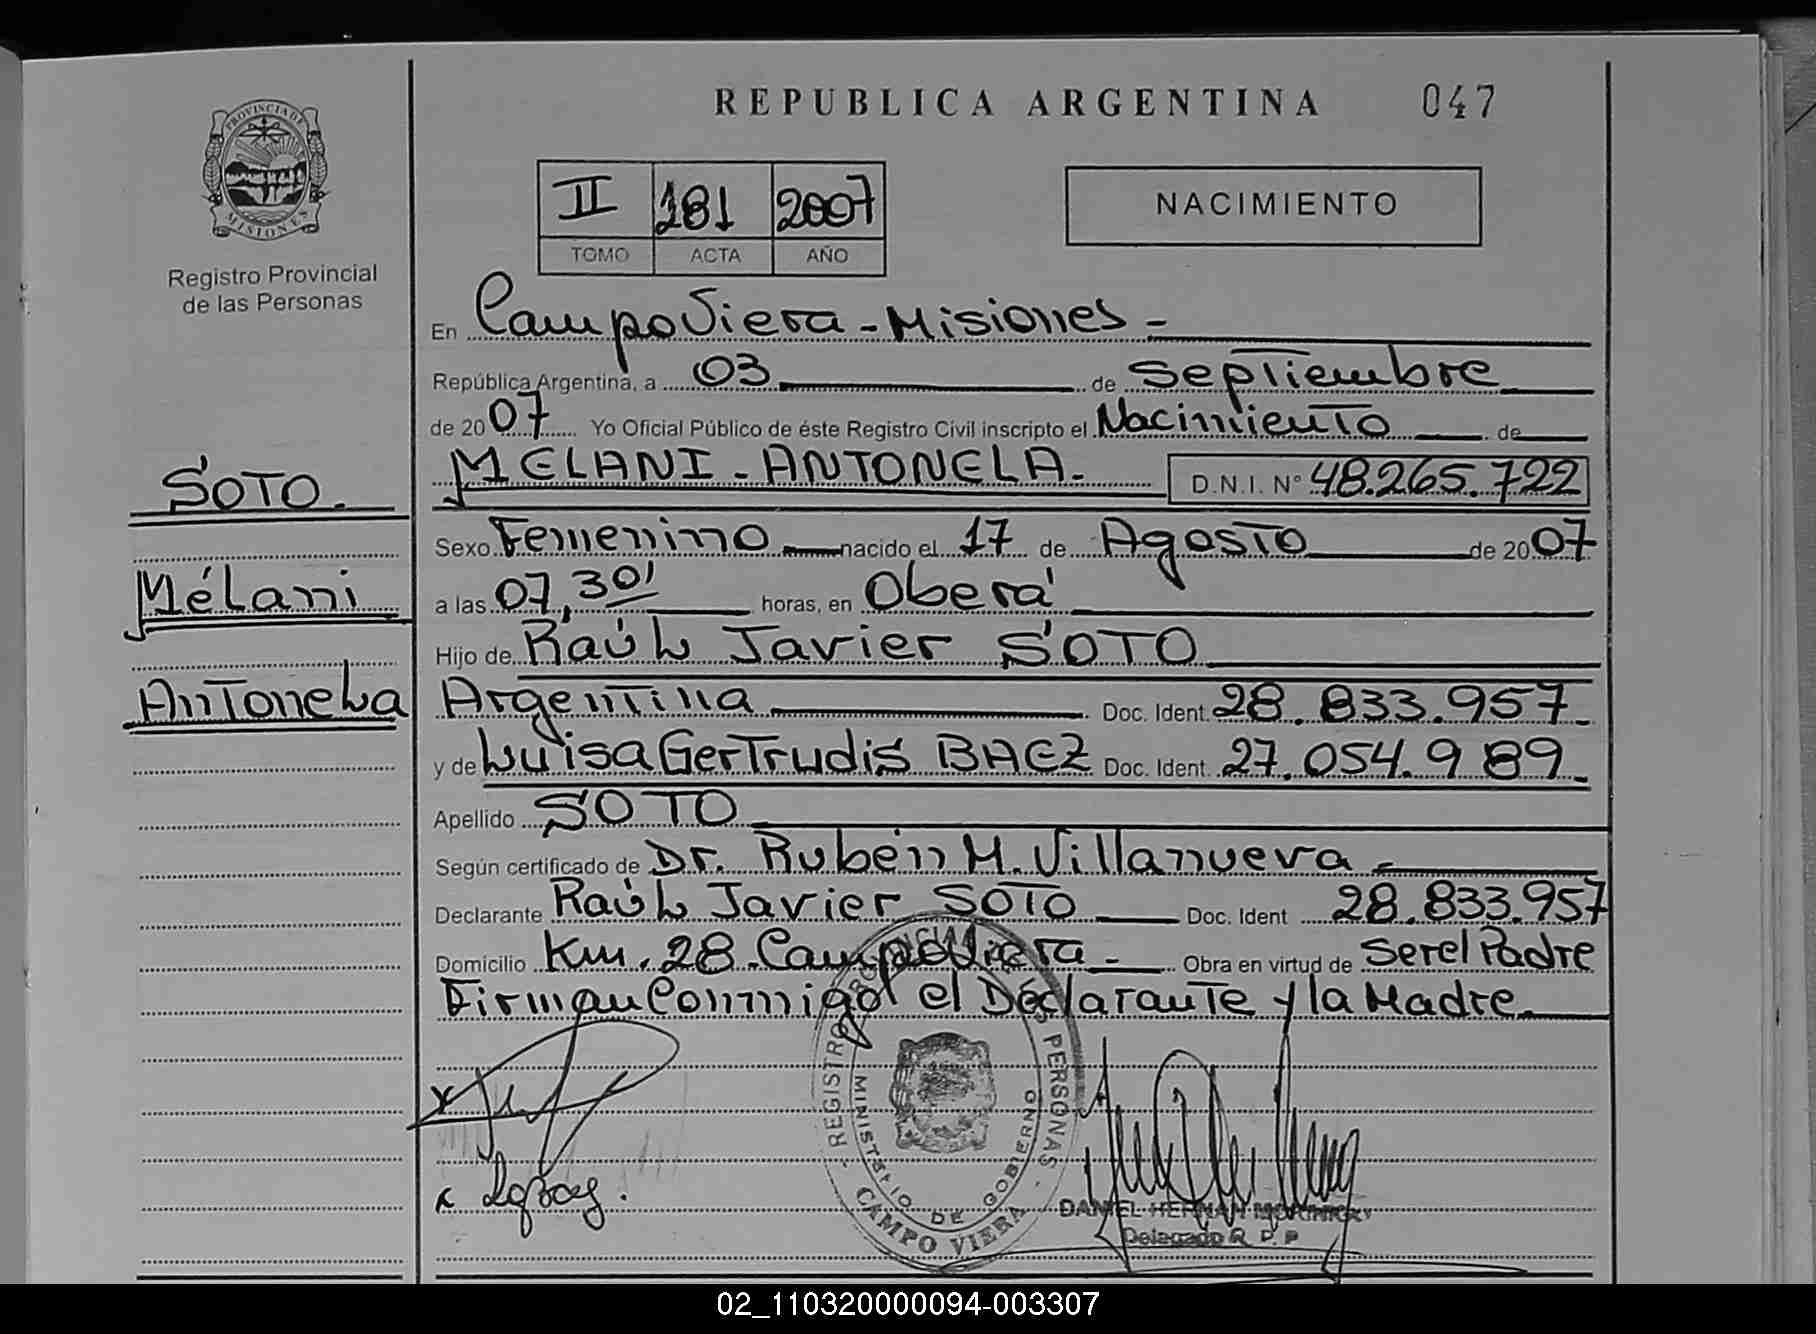 REPUBLICA ARGENTINA 047
PROVINCIA DE MISIONES
Registro Provincial
de las Personas
II 181 2007
TOMO ACTA AÑO
NACIMIENTO
En Campo Viera - Misiones -
República Argentina, a 03 de Septiembre
de 2007 Yo Oficial Público de éste Registro Civil inscripto el Nacimiento de
MELANI - ANTONELA - D.N.I. Nº 48.265.722
SOTO.
Mélani
Antonela
Sexo Femenino nacido el 17 de Agosto de 2007
a las 07,30' horas, en Oberá
Hijo de Raúl Javier SOTO
Argentina Doc. Ident. 28.833.957-
y de Luisa Gertrudis BAEZ Doc. Ident. 27.054.989-
Apellido SOTO
Según certificado de Dr. Rubén M. Villanueva -
Declarante Raúl Javier SOTO Doc. Ident 28.833.957
Domicilio Km. 28 - Campo Viera - Obra en virtud de Ser el Padre
Firman Conmigo el Declarante y la Madre.
REGISTRO PROVINCIAL DE LAS PERSONAS
MINISTERIO DE GOBIERNO
- CAMPO VIERA -
DANIEL HERNAN
Delegado R. P. P
02_110320000094-003307